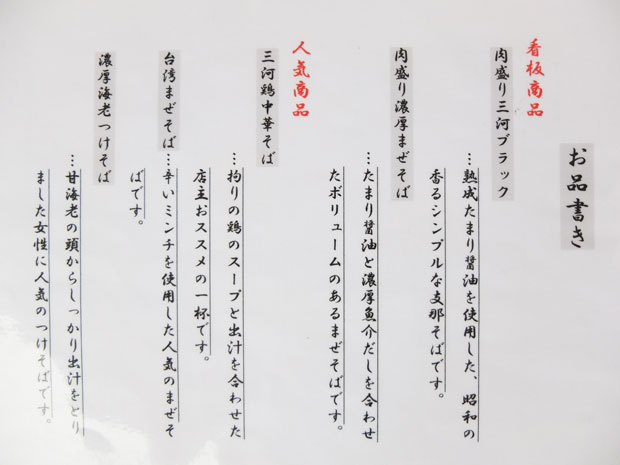 お品書き
看板商品
肉盛り三河ブラック
…熟成たまり醤油を使用した、昭和の
香るシンプルな支那そばです。
肉盛り濃厚まぜそば
…たまり醤油と濃厚魚介だしを合わせ
たボリュームのあるまぜそばです。
人気商品
三河鶏中華そば
…拘りの鶏のスープと出汁を合わせた
店主おススメの一杯です。
台湾まぜそば…辛いミンチを使用した人気のまぜそ
ばです。
濃厚海老つけそば
…甘海老の頭からしっかり出汁をとり
ました女性に人気のつけそばです。